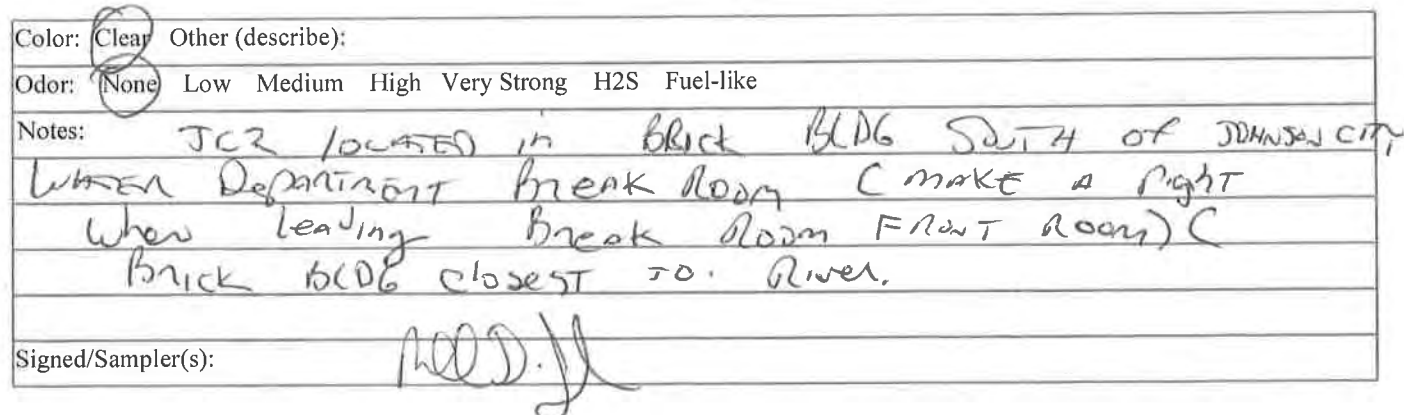 Color: Clear Other (describe):
Odor: None Low Medium High Very Strong H2S Fuel-like
Notes: JC2 located in BRick BLDG South of JOHNSON CITY
WATER DepartmenT Break Room (MAKE A RighT
When leaving Break Room FRONT Room) (
Brick BLDG closesT TO. River.
Signed/Sampler(s):